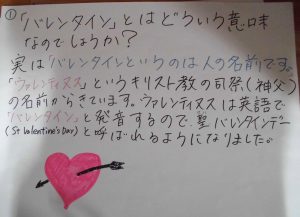 ① 「バレンタイン」とはどういう意味
なのでしょうか?
実は「バレンタインというのは人の名前です。
「ヴァレンティヌス」というキリスト教の司祭(神父)
の名前からきています。ヴァレンティヌスは英語で
「バレンタイン」と発音するので、聖バレンタインデー
(St Valentine's Day)と呼ばれるようになりました。